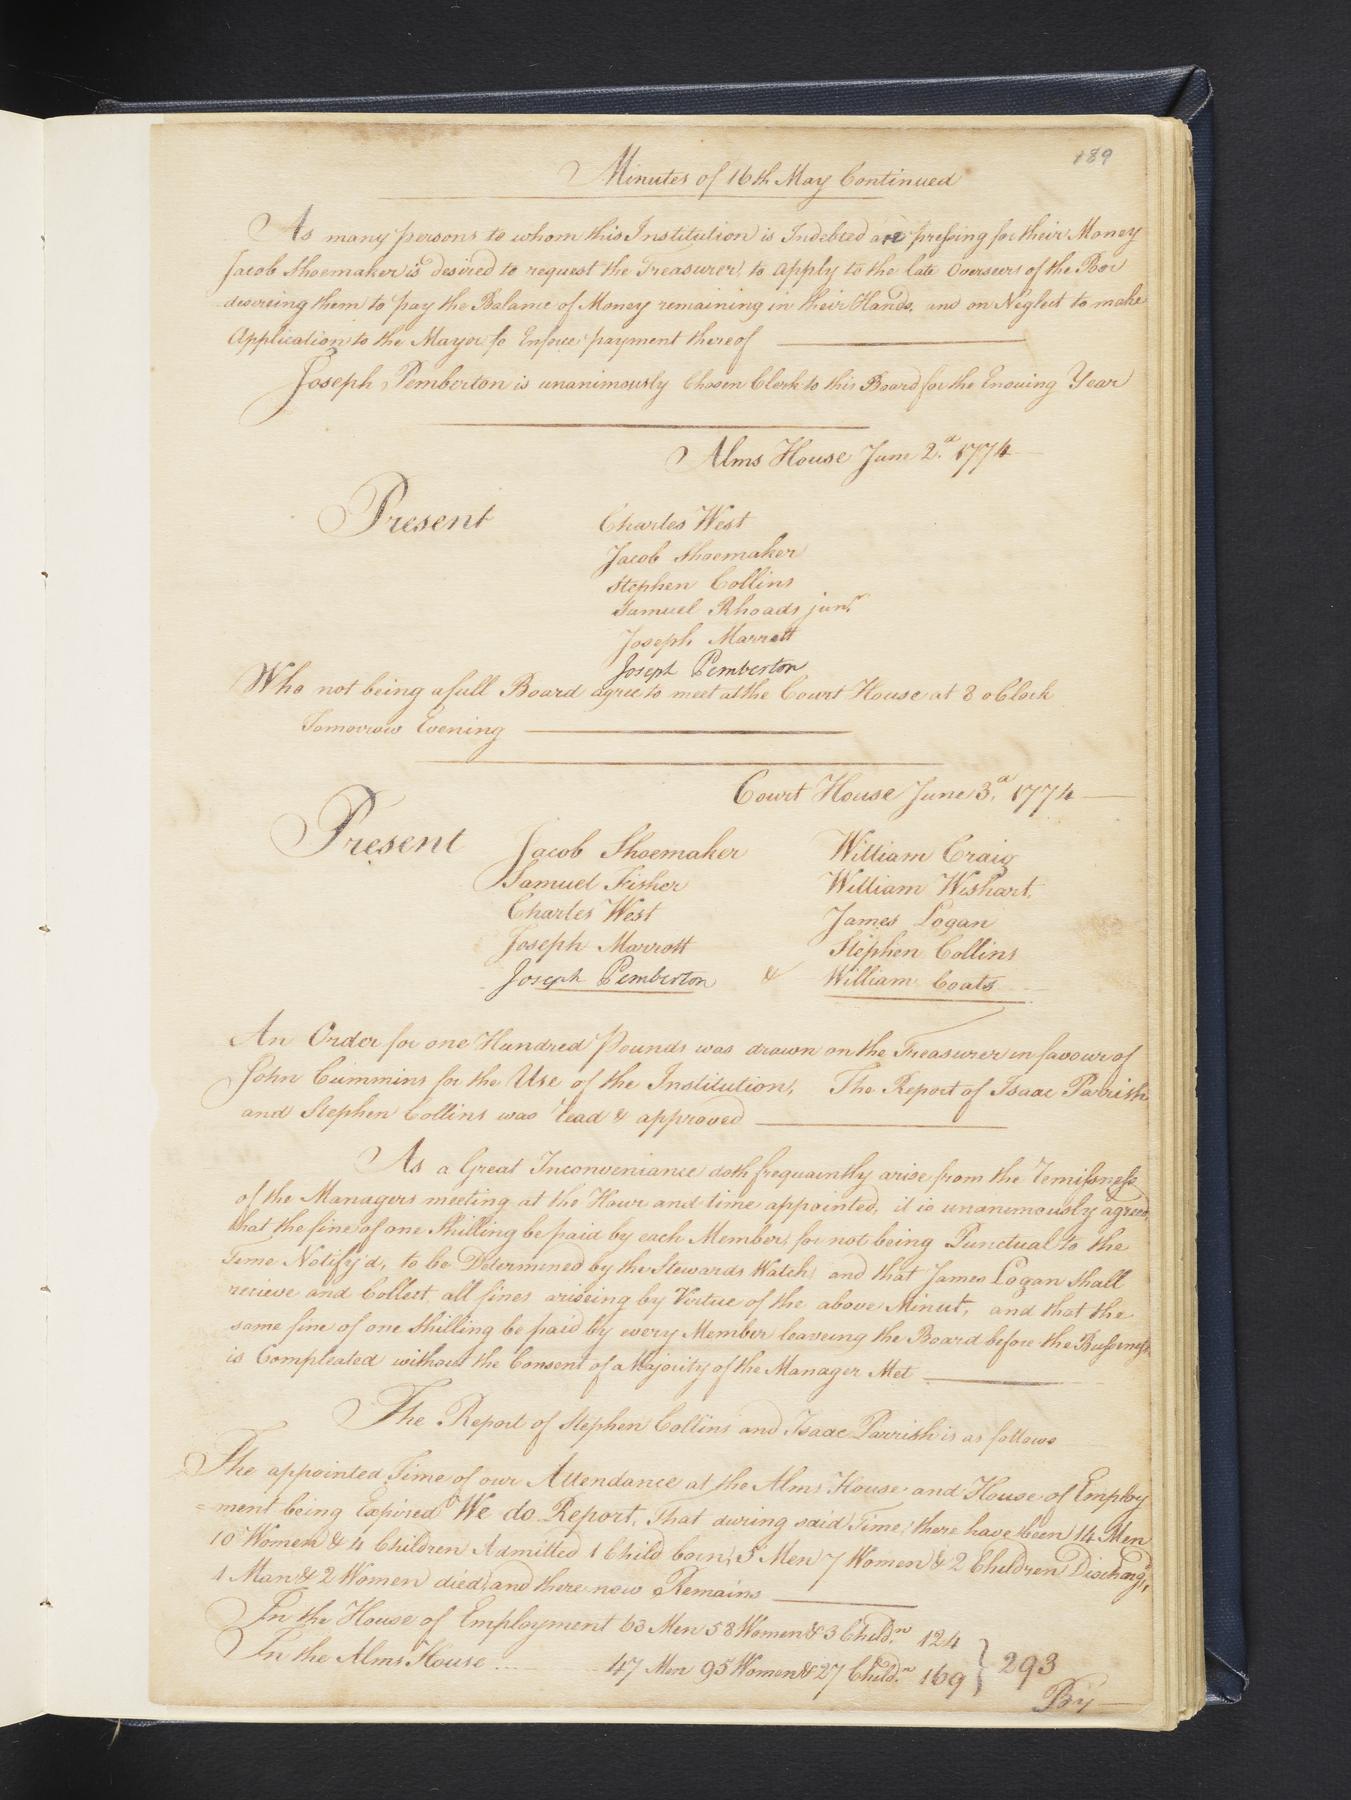 189
Minutes of 16th May Continued
As many persons to whom this Institution is Indebted are pressing for their Money
Jacob Shoemaker is desired to request the Treasurer, to apply to the late Overseers of the Poor
desireing them to pay the Balance of Money remaining in their Hands, and on Neglect to make
Application to the Mayor to Enforce payment thereof
Joseph Pemberton is unanimously Chosen Clerk to this Board for the Ensuing Year
Alms House June 2.d 1774
Present
Charles West
Jacob Shoemaker
Stephen Collins
Samuel Rhoads junr.
Joseph Marrott
Joseph Pemberton
Who not being a full Board agree to meet at the Court House at 8 oClock
Tomorrow Evening
Court House June 3.d 1774
Present
Jacob Shoemaker William Craig
Samuel Fisher William Wishart,
Charles West James Logan
Joseph Marrott Stephen Collins
Joseph Pemberton & William Coats
An Order for one Hundred Pounds was drawn on the Treasurer in favour of
John Cummins for the Use of the Institution, The Report of Isaac Parrish
and Stephen Collins was read & approved
As a Great Inconveniance doth frequaintly arise from the remissness
of the Managers meeting at the Hour and time appointed, it is unanimously agreed,
that the fine of one Shilling be paid by each Member, for not being Punctual to the
Time Notify'd, to be Determined by the Stewards Watch, and that James Logan Shall
recieve and Collect, all fines ariseing by Virtue of the above Minut, and that the
same fine of one Shilling be paid by every Member leaveing the Board before the Bussiness
is Compleated without the Consent of a Majority of the Manager Met
The Report of Stephen Collins and Isaac Parrish is as follows
The appointed Time of our Attendance at the Alms House and House of Employ
=ment being Expired We do Report, That during said Time, there have been 14 Men
10 Women & 4 Children Admitted 1 Child born, 5 Men 7 Women & 2 Children Discharg'd,
1 Man & 2 Women died, and there now Remains
In the House of Employment 63 Men 58 Women & 3 Child.n 124
In the Alms House .... 47 Men 95 Women & 27 Child.n 169 } 293
By